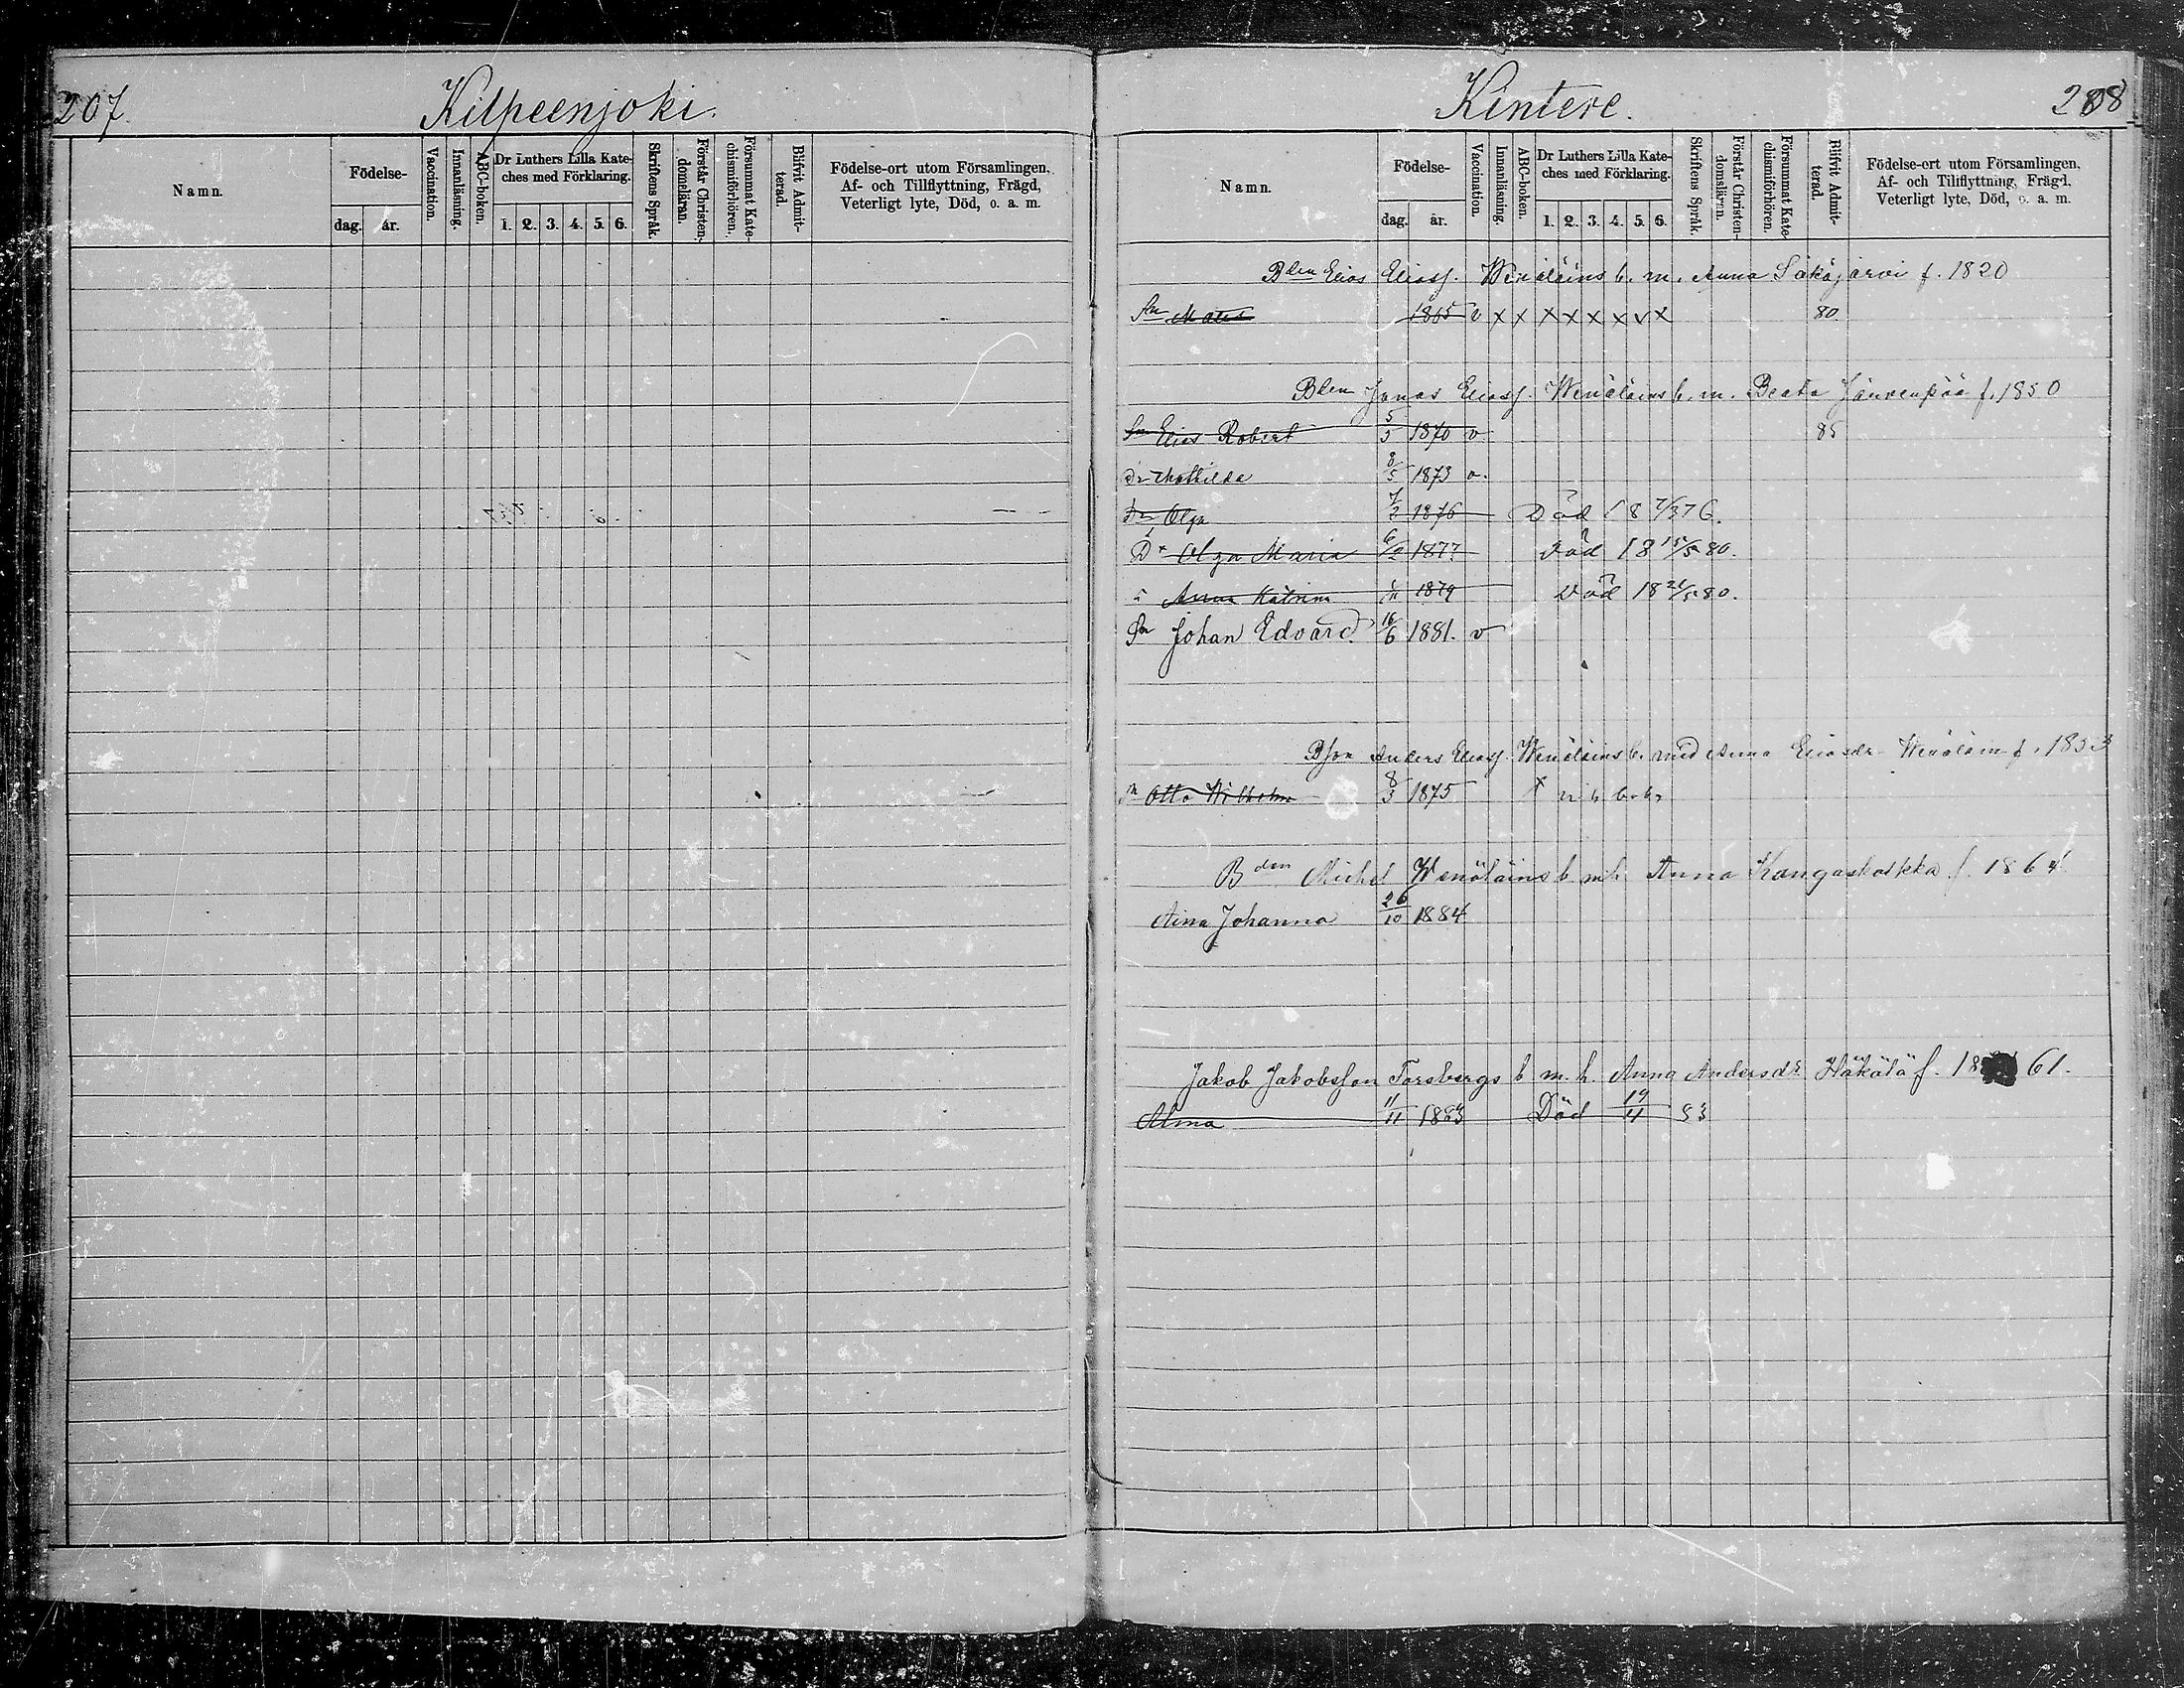 207. Kilpeenjoki.
Namn. Födelse- dag. år. Vaccination. Innanläsning. ABC-boken. Dr Luthers Lilla Kateches med Förklaring. 1. 2. 3. 4. 5. 6. Skriftens Språk. Förstår Christendomsläran. Försummat Katechismiförhören. Blifvit Admitterad. Födelse-ort utom Församlingen, Af- och Tillflyttning, Frägd, Veterligt lyte, Död, o. a. m.
Kintere. 208
Namn. Födelse- dag. år. Vaccination. Innanläsning. ABC-boken. Dr Luthers Lilla Kateches med Förklaring. 1. 2. 3. 4. 5. 6. Skriftens Språk. Förstår Christendomsläran. Försummat Katechismiförhören. Blifvit Admitterad. Födelse-ort utom Församlingen, Af- och Tillflyttning, Frägd, Veterligt lyte, Död, o. a. m.
Bden Elias Eliass. Wenäläins b. m. Anna Säkäjärvi f. 1820
Sn Mats 1865 v x x x x x x v x 80
Bden Jonas Eliass. Wenäläins b. m. Beata f. 1850
Sn Elias Robert 5/3 1870 v 85
Dr Mathilda 8/5 1873 v.
Dr Olga 7/3 1876 Död 18 7/3 76.
Dr Olga Maria 1877 Död 18 15/5 80.
Anna Katrina 1879 Död 18 80.
Sn Johan Edvard 16/6 1881. v
Bson Anders Eliass. Wenäläins b. med Anna Eliasdr Wenäläin f. 1853
Sn Otto Wilhelm 8/3 1875 x
Bden Michel Wenäläins b. m. h. Anna Kangaskokka f. 1864
Aina Johanna 26/10 1884
Jakob Jakobsson Forsbergs b. m. h. Anna Andersdr Häkälä f. 18 61.
Alma 11/11 1883 Död 19/11 83